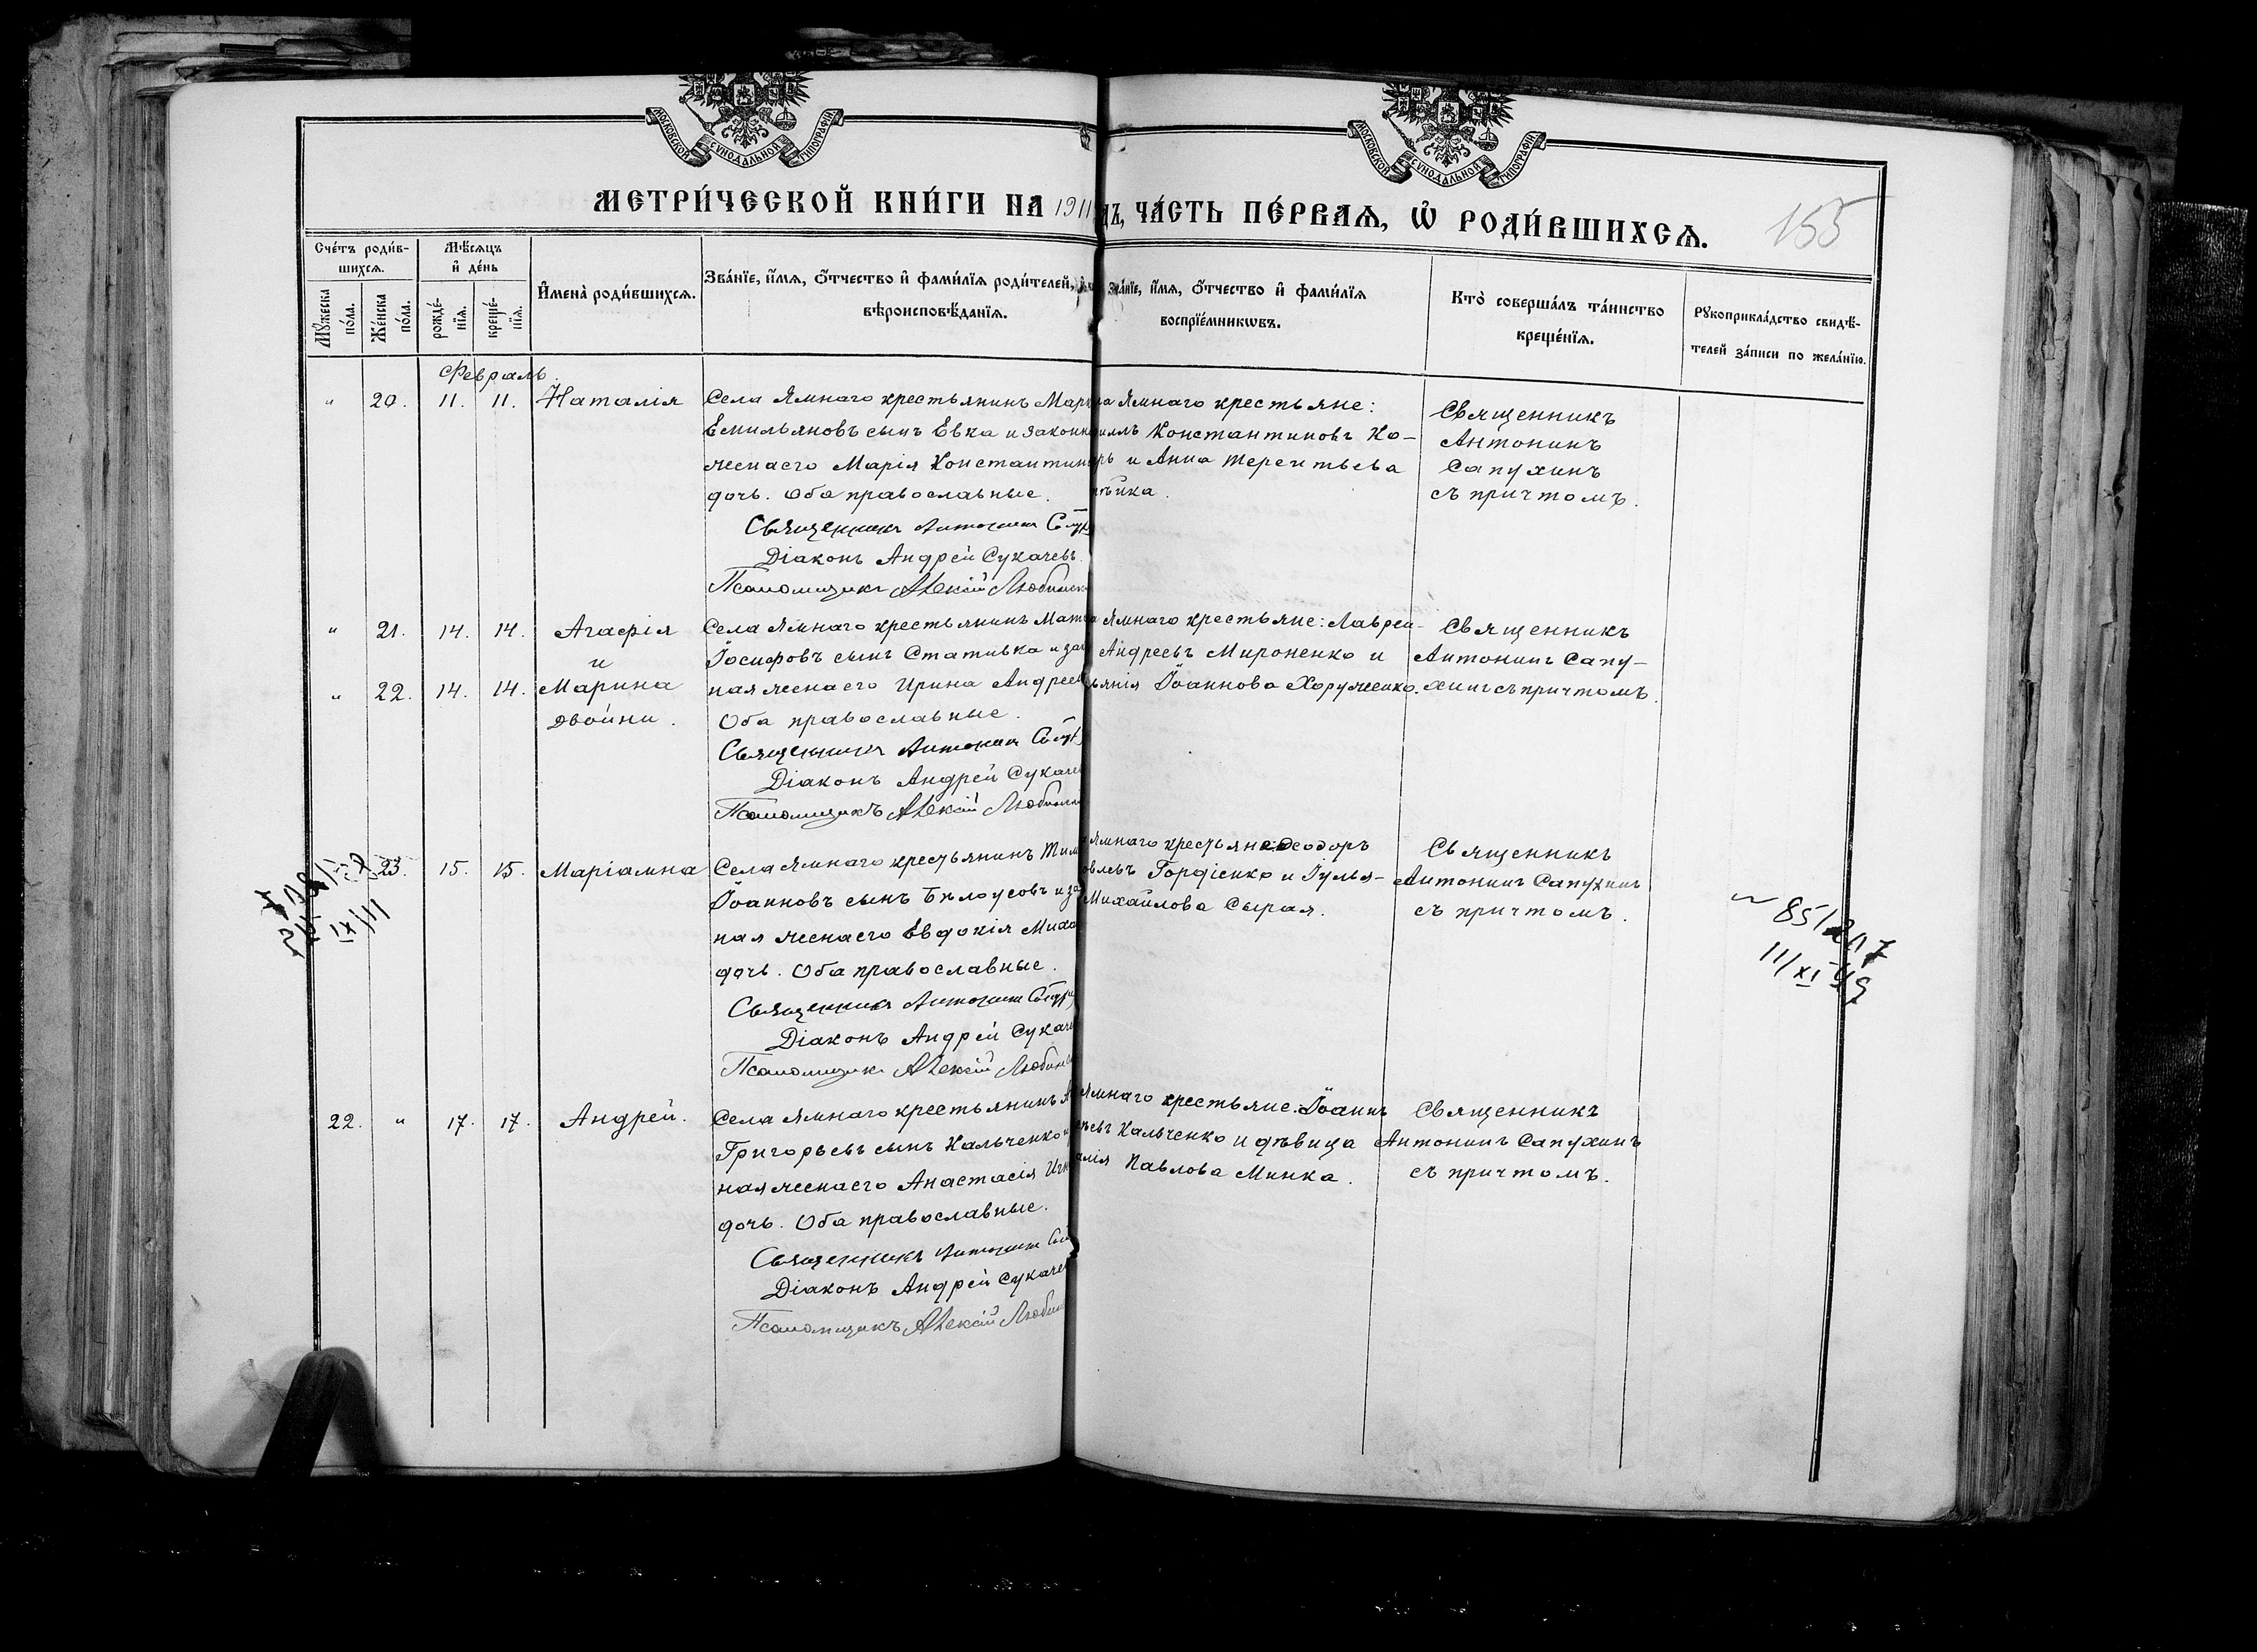 МОСКОВСКОЙ СѴНОДАЛЬНОЙ ТИПОГРАФІИ
МОСКОВСКОЙ СѴНОДАЛЬНОЙ ТИПОГРАФІИ
МЕТРИ́ЧЕСКОЙ КНИ́ГИ НА 1911
ДЪ, ЧА́СТЬ ПЕ́РВАѦ, Ѡ҆ РОДИ́ВШИХСѦ.
155
Сче́тъ роди́в-
шихсѧ.
Мꙋ́жеска
по́ла.
Же́нска
по́ла.
Мѣ́сѧцъ
и҆ де́нь
рожде́-
нїѧ.
креще́-
нїѧ.
И҆мена̀ роди́вшихсѧ.
Зва́нїе, и҆́мѧ, ѻ҆́тчество и҆ фами́лїѧ роди́телей,
вѣроисповѣ́данїѧ.
Зва́нїе, и҆́мѧ, ѻ҆́тчество и҆ фами́лїѧ
воспрїе́мникѡвъ.
Кто̀ соверша́лъ та́инство
креще́нїѧ.
Рꙋкоприкла́дство свидѣ́-
телей за́писи по жела́нїю.
Февраль.
" 20. 11. 11. Наталія
Села Ямнаго крестьянинъ Мар
Емильяновъ сынъ Евка и законн
жена его Марія Константин
дочь. Оба православные.
Священникъ Антонинъ Сапух
Діаконъ Андрей Сукачевъ.
Псаломщикъ Алексій Любинск
ла Ямнаго крестьяне:
иллъ Константиновъ Ко-
рь и Анна Терентьева
ѣйка.
Священникъ
Антонинъ
Сапухинъ
съ причтомъ.
" 21. 14. 14. Агафія
и
" 22. 14. 14. Марина
двойни.
Села Ямнаго крестьянинъ Матв
Іосифовъ сынъ Стативка и зак
ная жена его Ирина Андреев
Оба православные.
Священникъ Антонинъ Сапух
Діаконъ Андрей Сукаче
Псаломщикъ Алексій Любинск
а Ямнаго крестьяне: Лаврен-
Андреевъ Мироненко и
ьянія Іоаннова Хоруженко.
Священникъ
Антонинъ Сапу-
хинъ съ причтомъ.
23. 15. 15. Маріамна
Села Ямнаго крестьянинъ Тим
Іоанновъ сынъ Бѣлоусовъ и за
ная жена его Евдокія Миха
дочь. Оба православные.
Священникъ Антонинъ Сапух
Діаконъ Андрей Сукаче
Псаломщикъ Алексій Любинск
Ямнаго крестьяне: Ѳеодоръ
овлевъ Гордіенко и Іулья-
Михайлова Сырая.
Священникъ
Антонинъ Сапухинъ
съ причтомъ.
11/XI 49
22. " 17. 17. Андрей.
Села Ямнаго крестьянинъ А
Григорьевъ сынъ Кальченко и
ная жена его Анастасія Игн
дочь. Оба православные.
Священникъ Антонинъ Сап
Діаконъ Андрей Сукачев
Псаломщикъ Алексій Любин
Ямнаго крестьяне: Іоаннъ
ьевъ Кальченко и дѣвица
алія Павлова Минка.
Священникъ
Антонинъ Сапухинъ
съ причтомъ.